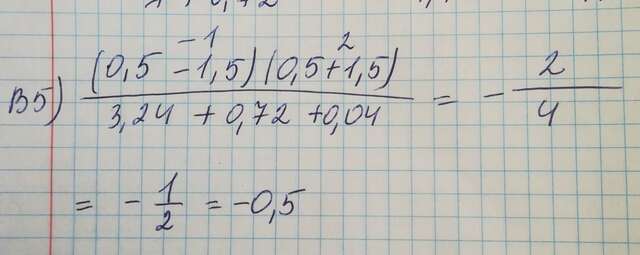 -1 2
B5) (0,5 - 1,5) (0,5 + 1,5) / 3,24 + 0,72 + 0,04 = - 2/4
= - 1/2 = -0,5